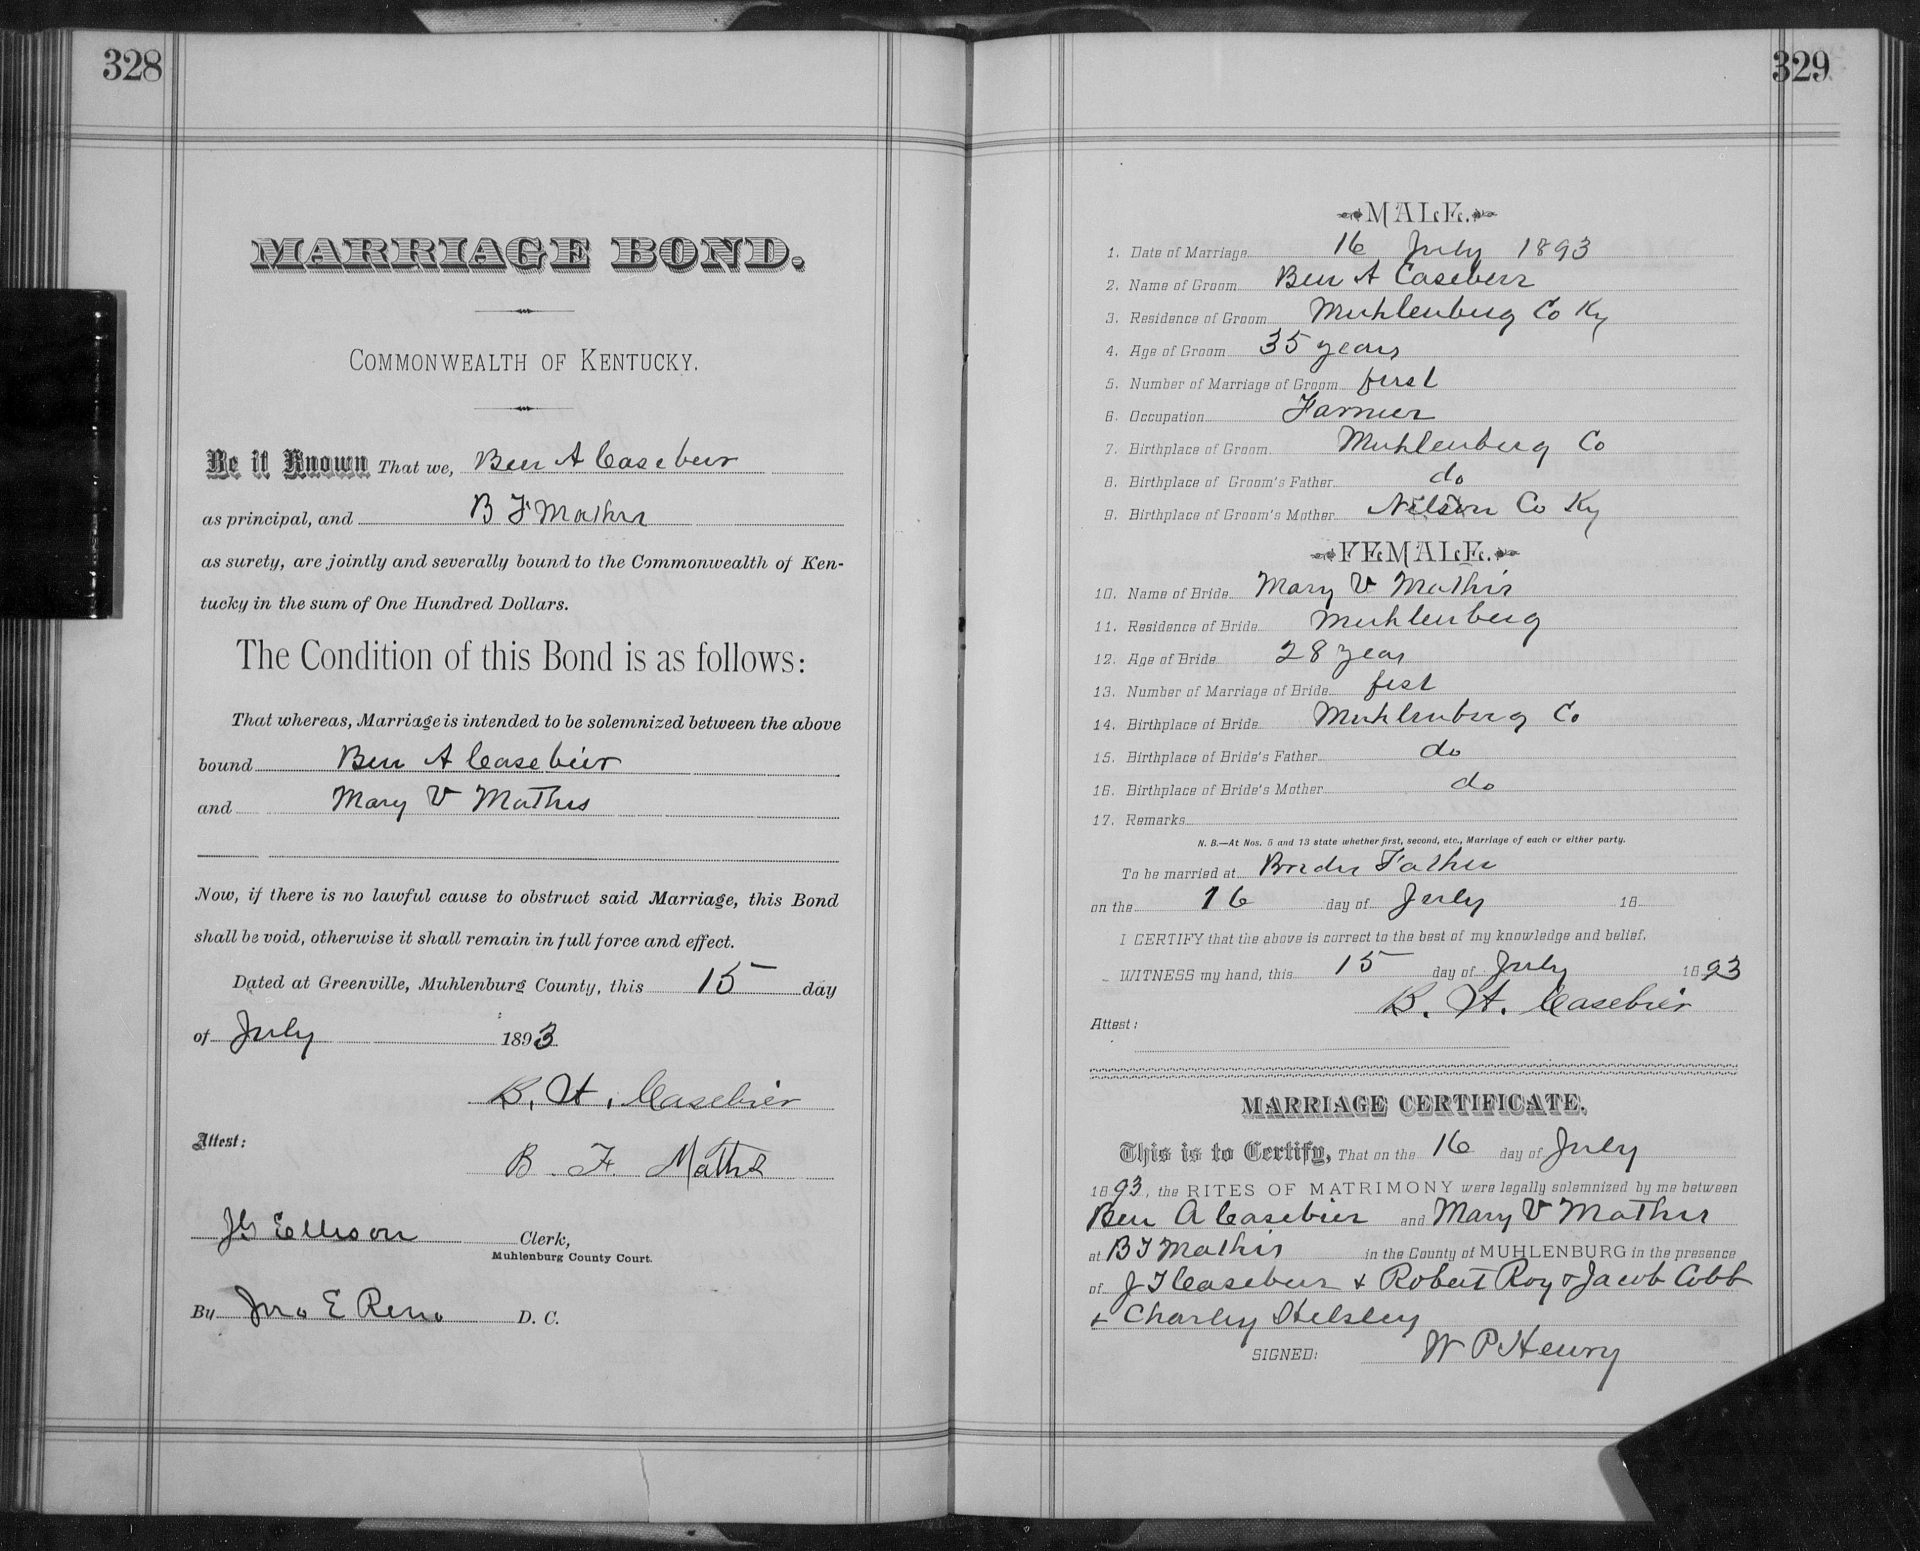 328
MARRIAGE BOND.
COMMONWEALTH OF KENTUCKY.
Be it Known That we, Ben A Casebier
as principal, and B F Mathis
as surety, are jointly and severally bound to the Commonwealth of Ken-
tucky in the sum of One Hundred Dollars.
The Condition of this Bond is as follows:
That whereas, Marriage is intended to be solemnized between the above
bound Ben A Casebier
and Mary V Mathis
Now, if there is no lawful cause to obstruct said Marriage, this Bond
shall be void, otherwise it shall remain in full force and effect.
Dated at Greenville, Muhlenburg County, this 15 day
of July 1893
B. A. Casebier
Attest:
B. F. Mathis
JG Ellison Clerk,
Muhlenburg County Court.
By Jno E Reno D. C.
329
MALE.
1. Date of Marriage 16 July 1893
2. Name of Groom Ben A Casebier
3. Residence of Groom Muhlenburg Co Ky
4. Age of Groom 35 years
5. Number of Marriage of Groom first
6. Occupation Farmer
7. Birthplace of Groom Muhlenburg Co
8. Birthplace of Groom's Father do
9. Birthplace of Groom's Mother Nelson Co Ky
FEMALE.
10. Name of Bride Mary V Mathis
11. Residence of Bride Muhlenburg
12. Age of Bride 28 year
13. Number of Marriage of Bride fist
14. Birthplace of Bride Muhlenburg Co
15. Birthplace of Bride's Father do
16. Birthplace of Bride's Mother do
17. Remarks
N. B.—At Nos. 5 and 13 state whether first, second, etc., Marriage of each or either party.
To be married at Brides Father
on the 16 day of July 18
I CERTIFY that the above is correct to the best of my knowledge and belief.
WITNESS my hand, this 15 day of July 1893
B. A. Casebier
Attest:
MARRIAGE CERTIFICATE.
This is to Certify, That on the 16 day of July
1893, the RITES OF MATRIMONY were legally solemnized by me between
Ben A Casebier and Mary V Mathis
at B F Mathis in the County of MUHLENBURG in the presence
of J T Casebier & Robert Roy & Jacob Cobb
& Charley Helsley
SIGNED: W P Henry